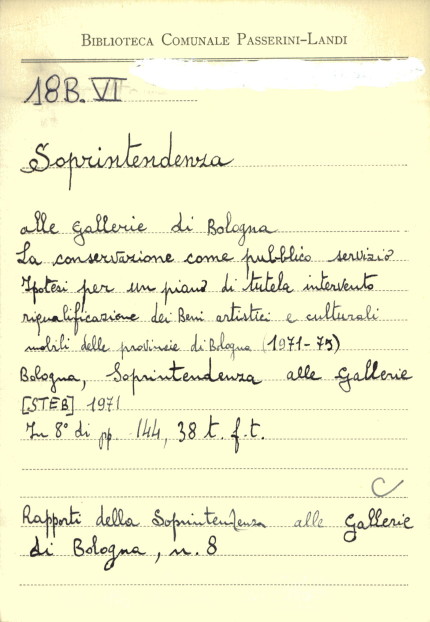 BIBLIOTECA COMUNALE PASSERINI-LANDI
18B. VI
Soprintendenza
alle Gallerie di Bologna
La conservazione come pubblico servizio
Ipotesi per un piano di tutela intervento
riqualificazione dei Beni artistici e culturali
mobili delle provincie di Bologna (1971-75)
Bologna, Soprintendenza alle Gallerie
[STEB] 1971
In 8° di pp. 144, 38 t. f.t.
C
Rapporti della Soprintendenza alle Gallerie
di Bologna, n. 8